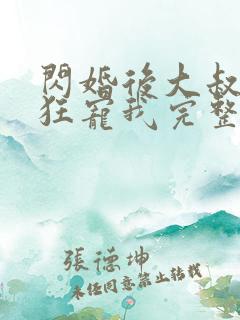 閃婚後大叔
狂寵我完整
張德坤
未經同意禁止轉載